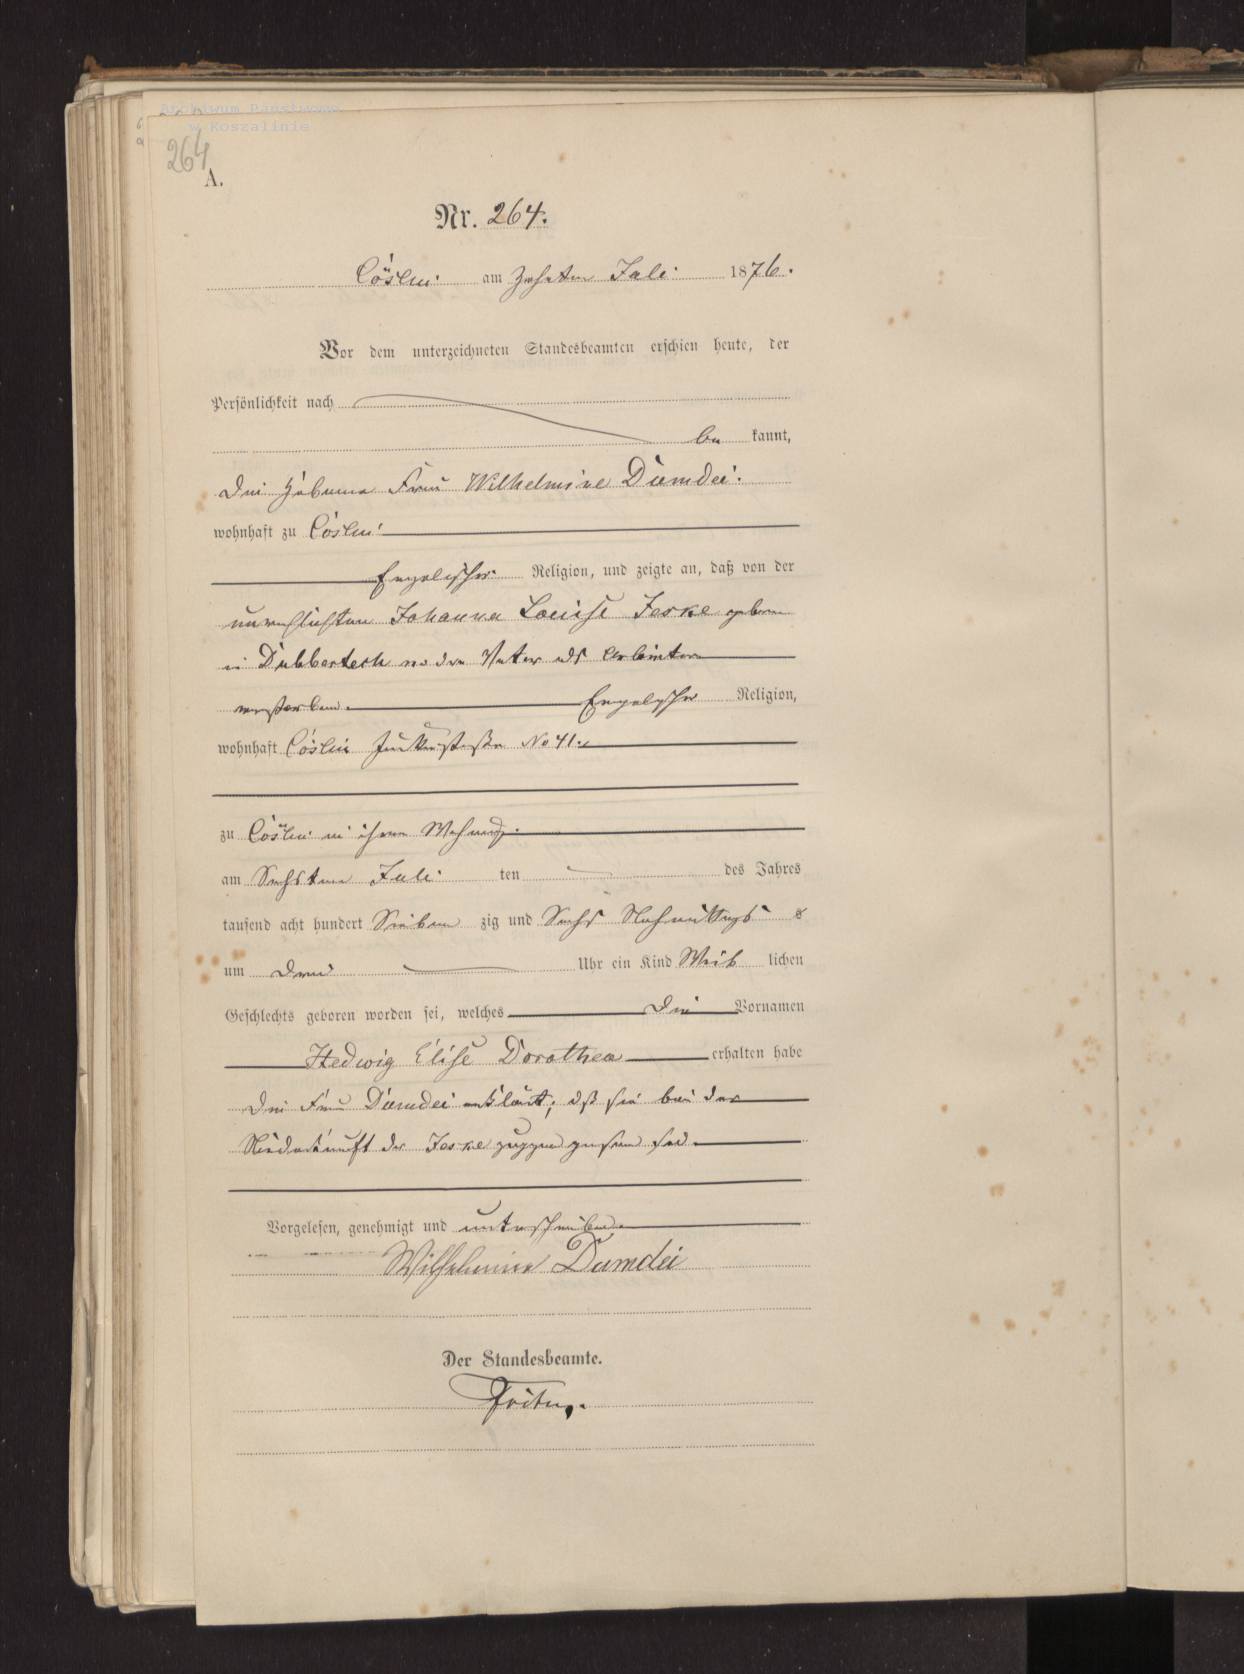 Archiwum Państwowe
w Koszalinie
264
A.
Nr. 264.
Cöslin am zehnten Juli 1876.
Vor dem unterzeichneten Standesbeamten erschien heute, der
Persönlichkeit nach
be kannt,
die Hebamme Frau Wilhelmine Dumdei.
wohnhaft zu Cöslin
Evgelischer Religion, und zeigte an, daß von der
unverehlichten Johanna Louise Jeske geboren
in Dubbertech wo der Vater als Arbeiter
verstorben. Evgelischer Religion,
wohnhaft Cöslin No 41.
zu Cöslin in ihrer Wohnung.
am Sechsten Juli ten des Jahres
tausend acht hundert Sieben zig und Sechs Nachmittags
um drei Uhr ein Kind Weib lichen
Geschlechts geboren worden sei, welches die Vornamen
Hedwig Elise Dorothea erhalten habe
Die Frau Dumdei erklärt, daß sie bei der
Niederkunft der Jeske zugegen gewesen sei.
Vorgelesen, genehmigt und unterschrieben
Wilhelmine Dumdei
Der Standesbeamte.